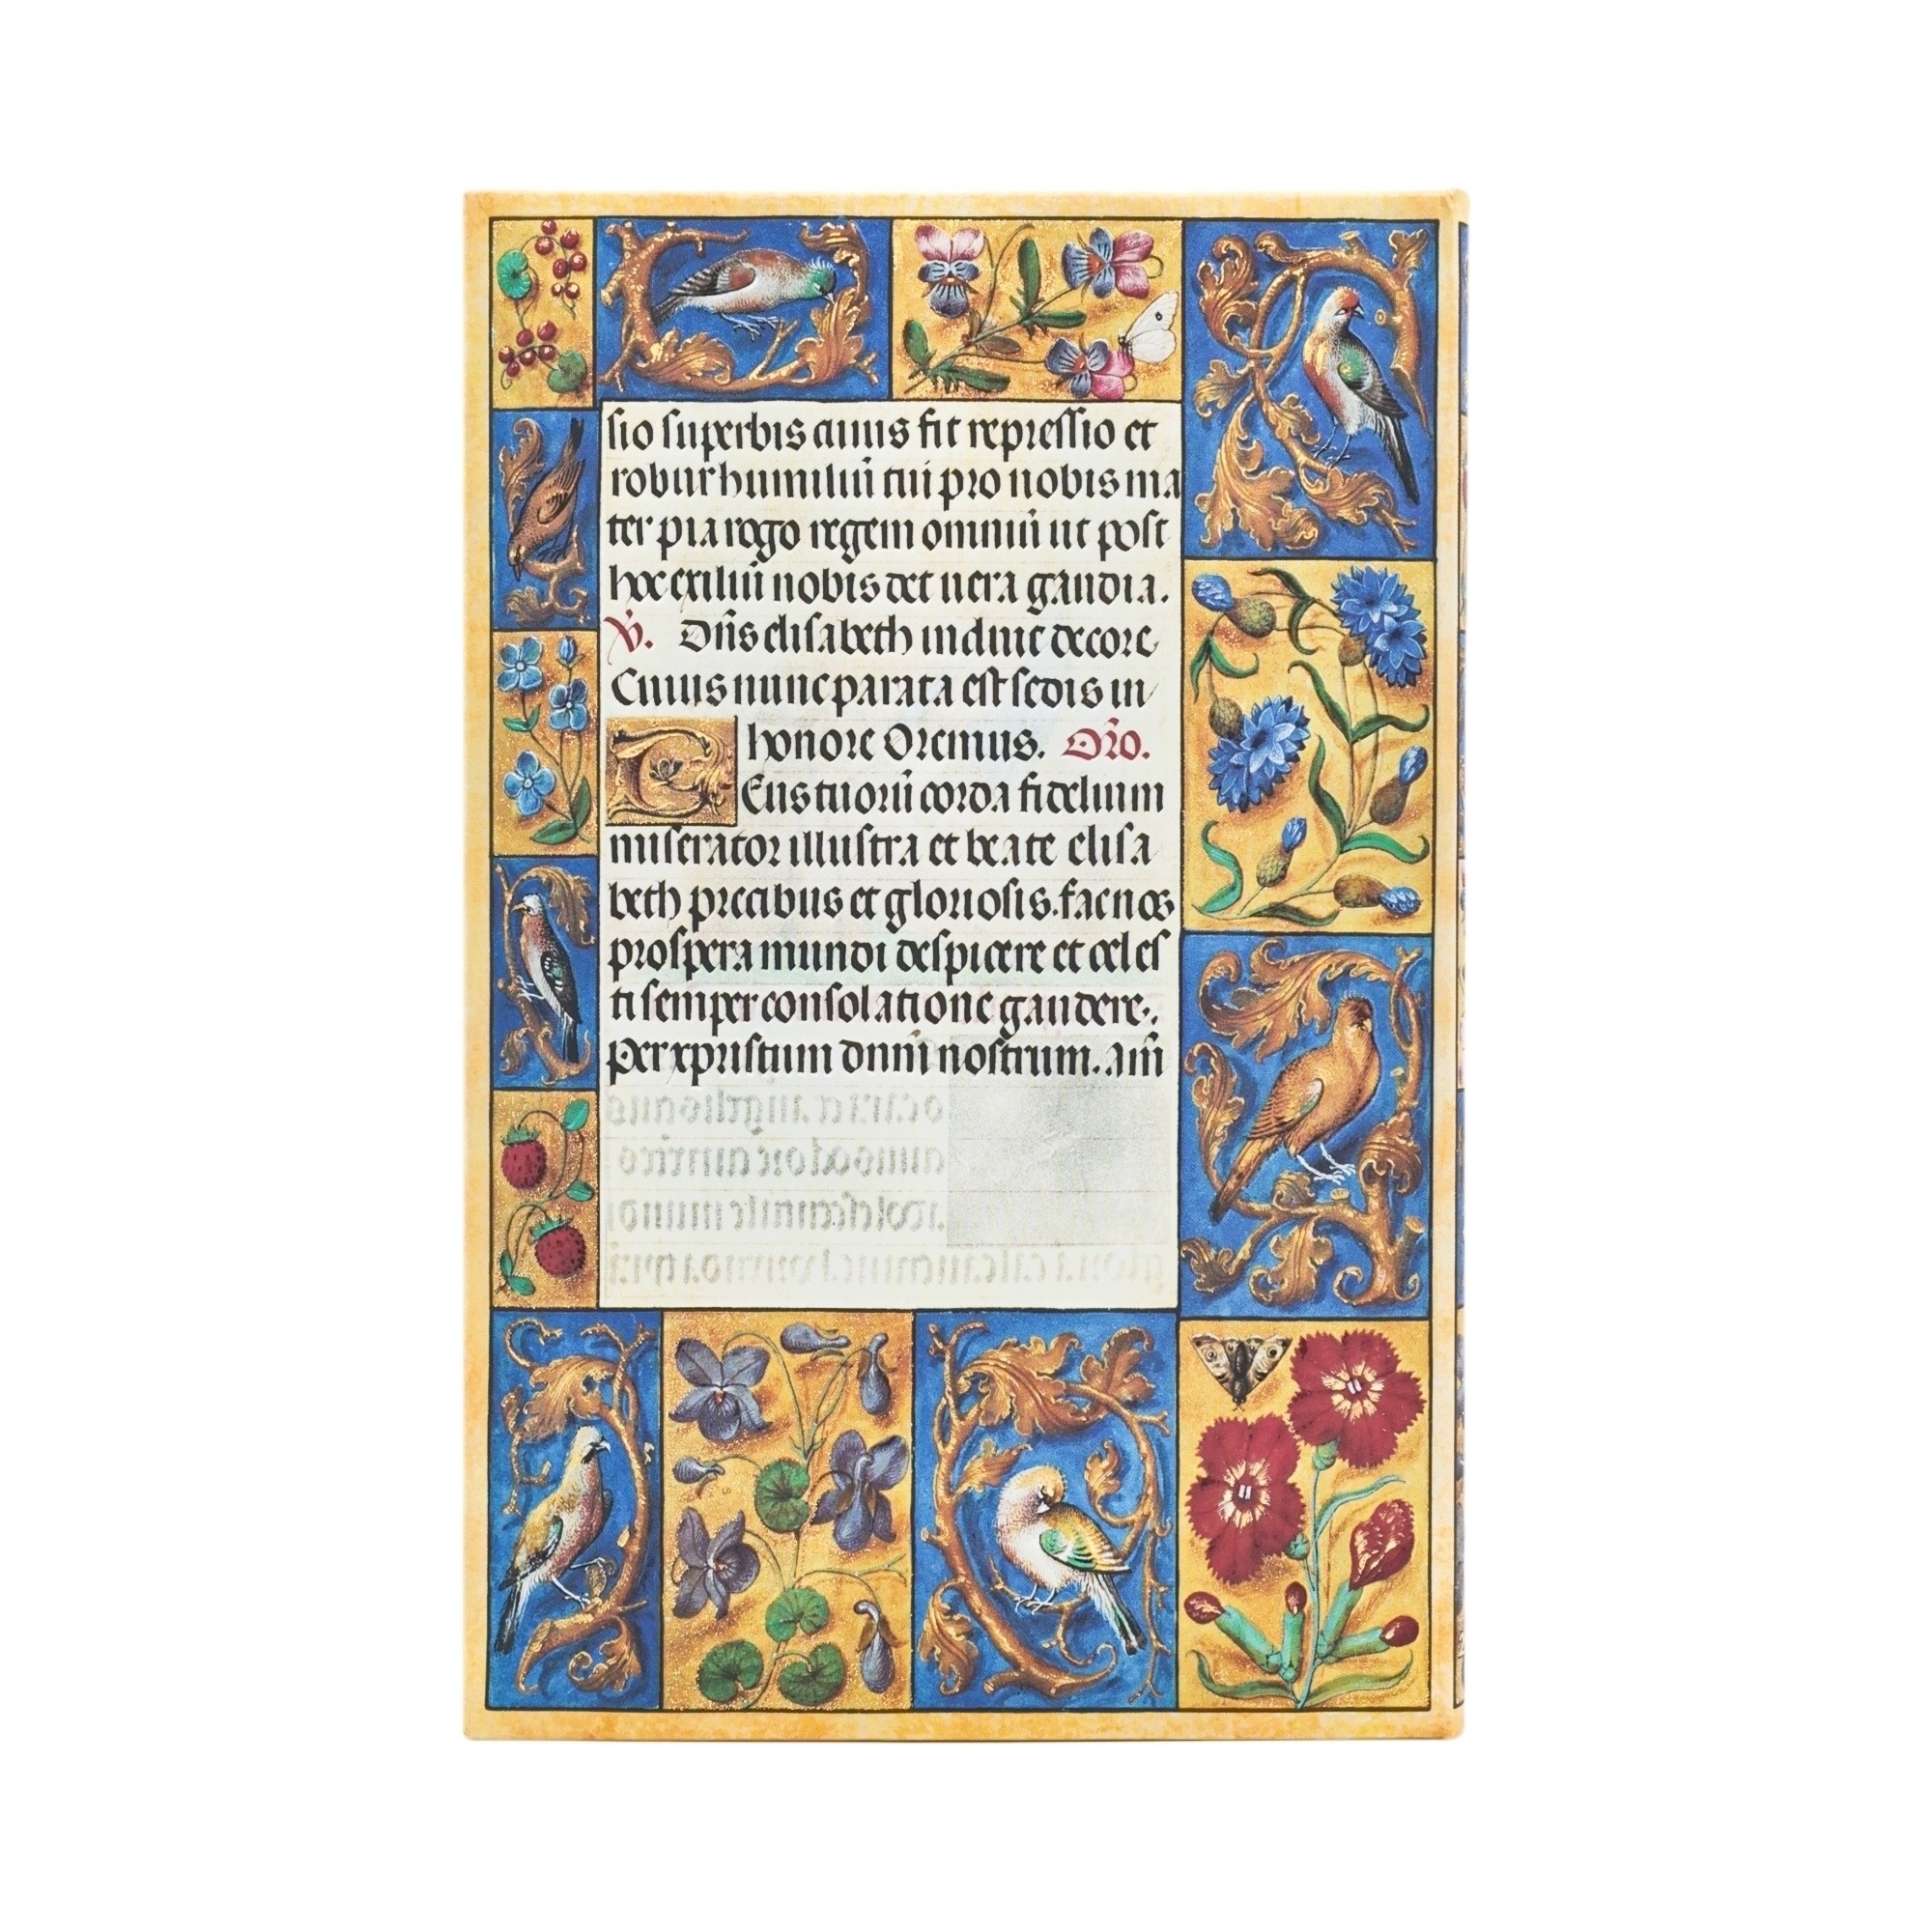 sio superbis cuius fit repressio et
robur humiliū tui pro nobis ma
ter pia rogo regem omniū ut post
hoc exiliū nobis det uera gaudia.
V̷. Dn̄s elisabeth induit decore
Cuius nunc parata est sedis in
honore Oremus. Or̄o.
Deus tuorū corda fidelium
miserator illustra et beate elisa
beth precibus et gloriosis. fac nos
prospera mundi despicere et celes
ti semper consolatione gaudere.
Per xpristum dnm̄ nostrum. am̄